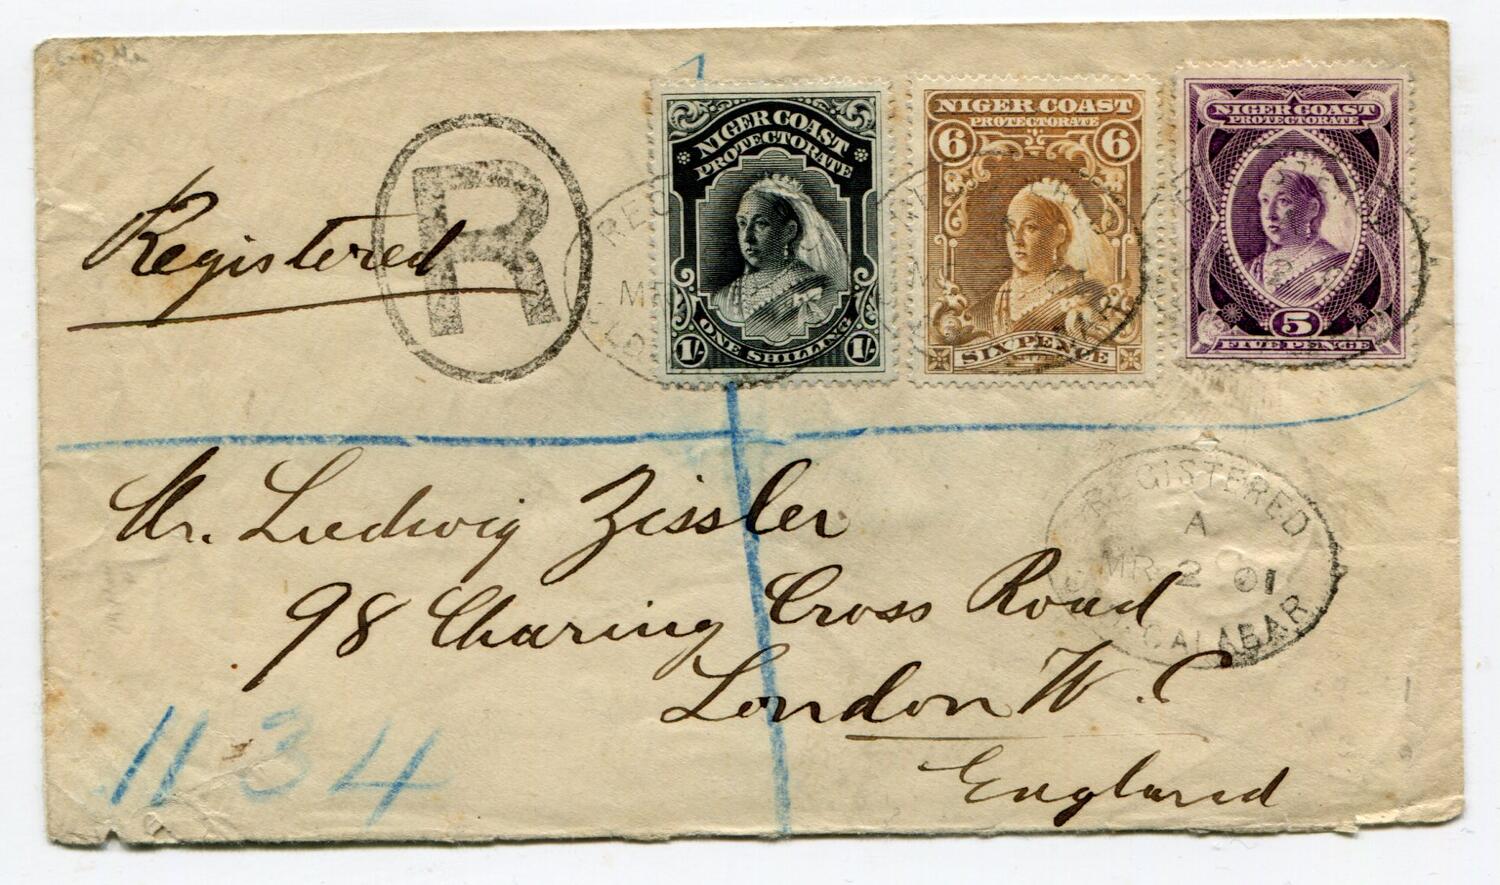 NIGER COAST
PROTECTORATE
1/- ONE SHILLING 1/-
NIGER COAST
PROTECTORATE
6 6
SIX PENCE
NIGER COAST
PROTECTORATE
5
FIVE PENCE
Registered
R
Mr. Ludwig Zissler
98 Charing Cross Road
London W. C
England
REGISTERED
A
MR 2 01
CALABAR
1134